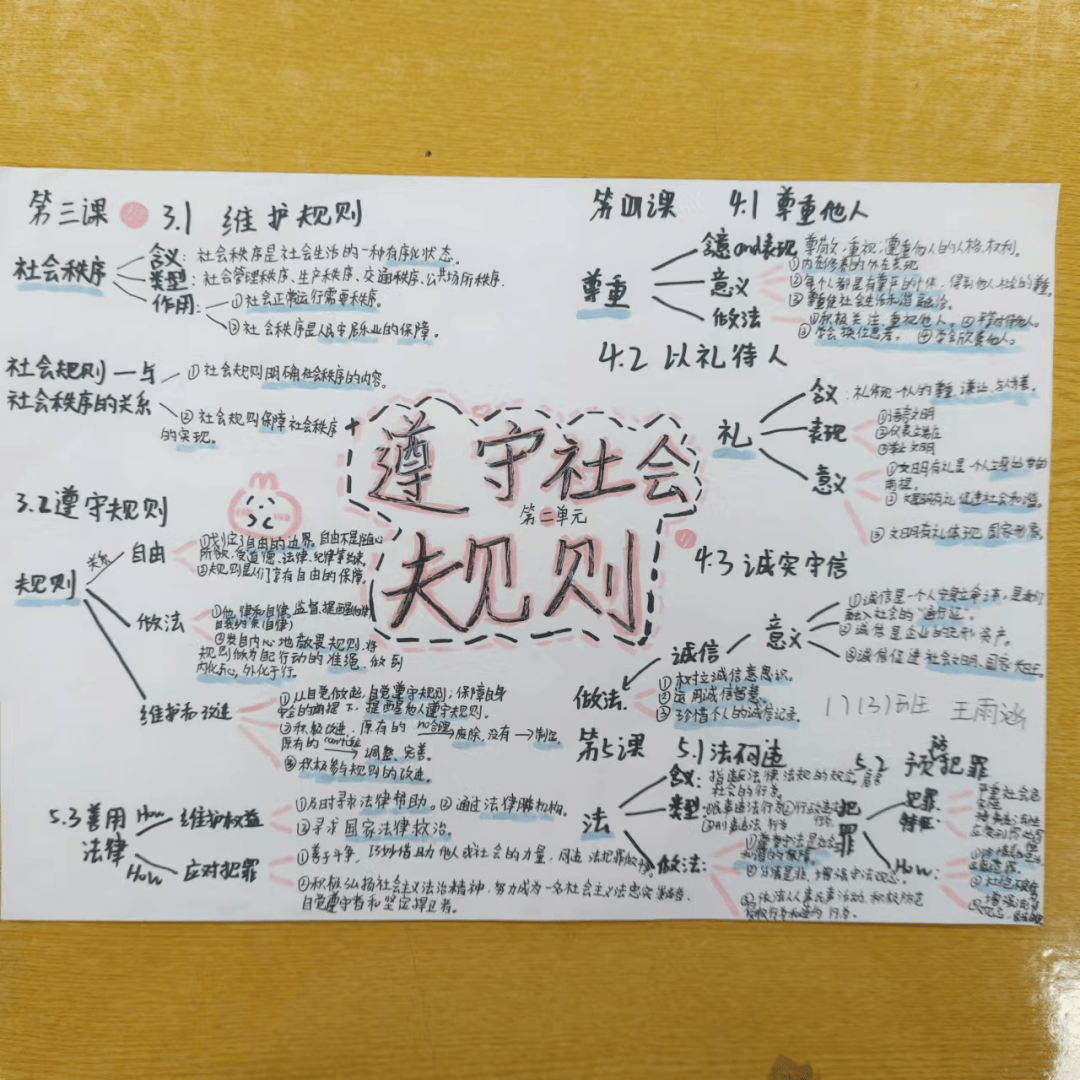 第三课 3.1 维护规则
社会秩序
含义: 社会秩序是社会生活的一种有序化状态。
类型: 社会管理秩序、生产秩序、交通秩序、公共场所秩序.
作用:
①社会正常运行需要秩序。
②社会秩序是人民安居乐业的保障。
社会规则一与
社会秩序的关系
①社会规则明确社会秩序的内容。
②社会规则保障社会秩序
的实现。
3.2遵守规则
规则
关系
自由
①划定了自由的边界。自由不是随心
所欲,受道德、法律、纪律等约束。
②规则是人们享有自由的保障。
做法
①他律和自律,监督、提醒
自我约束(自律)
②发自内心地敬畏规则,将
规则作为自己行动的准绳,做到
内化于心,外化于行。
维护和改进
①从自觉做起,自觉遵守规则;保障自身
安全的前提下,提醒他人遵守规则。
②积极改进,原有的 不合理→废除,没有→制定,
原有的 →调整、完善。
③积极参与规则的改进。
遵守社会
第二单元
规则
第四课 4.1 尊重他人
尊重
含意and表现 尊敬、重视;尊重他人的人格、权利。
意义
①内在修养的外在表现
②每个人都是有尊严的个体,得到他人社会的尊重。
③尊重使社会生活和谐融洽。
做法
①积极关注、重视他人。②平等对待他人。
③学会换位思考。④学会欣赏他人。
4.2 以礼待人
礼
含义: 礼体现一个人的尊重、谦让、与人为善。
表现
①语言文明
②仪表端庄
③举止文明
意义
①文明有礼是一个人立身处世的
前提。
②文明有礼促进社会和谐。
③文明有礼体现国家形象
4.3 诚实守信
诚信
意义
①诚信是一个人安身立命之本,是我们
融入社会的“通行证”。
②诚信是企业的无形资产。
③诚信促进社会文明、国家兴旺
做法.
①树立诚信意识。
②运用诚信智慧。
③珍惜个人的诚信记录。
1)(3)班 王雨涵
第5课 5.1法不可违
法
含义: 指违反法律法规的规定,危害
社会的行为。
类型: ①民事违法行为②行政违法
③刑事违法行为
做法:
②分清是非,增强守法观念。
③依法从事民事活动,积极防范
5.2 预防犯罪
犯
罪
犯罪
特征:
严重社会危
害性
How:
5.3善用
法律
How
维护权益
①及时寻求法律帮助。②通过法律服务机构。
③寻求国家法律救治。
How
应对犯罪
①善于斗争,巧妙借助他人或社会的力量,同违法犯罪做斗争
②积极弘扬社会主义法治精神,努力成为一名社会主义法忠实崇尚者、
自觉遵守者和坚定捍卫者。